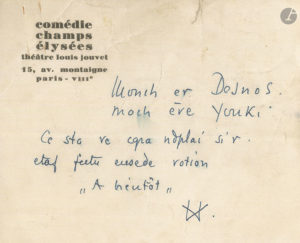 comédie
champs
élysées
théâtre louis jouvet
15, av. montaigne
paris - VIIIᵉ
Monch er Desnos.
moch ève Youki
Ce sta ve cgra ndplai si'r.
etaf fectu eusede votion
"A bientôt"